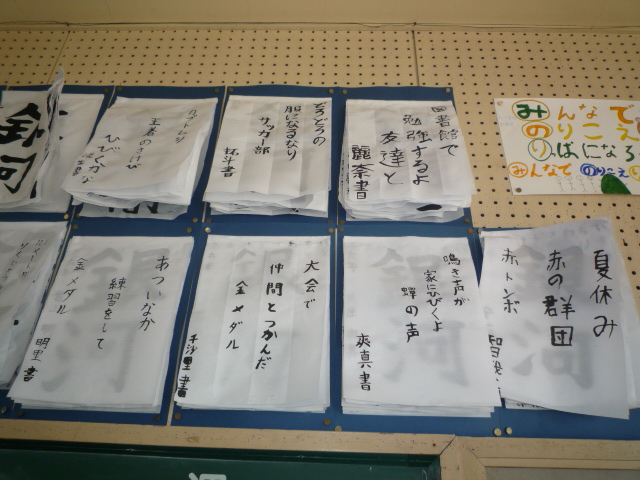 銀河
王者のさけび
ひびくか
どろどろの
服になるなり
サッカー部
拓斗書
図書館で
勉強するよ
友達と
麗奈書
みんなで
のりこえ
りっぱになろ
みんなで のりこえ
あついなか
練習をして
金メダル
明里書
大会で
仲間とつかんだ
金メダル
千沙里書
鳴き声が
家にひびくよ
蝉の声
爽真書
夏休み
赤の群団
赤トンボ